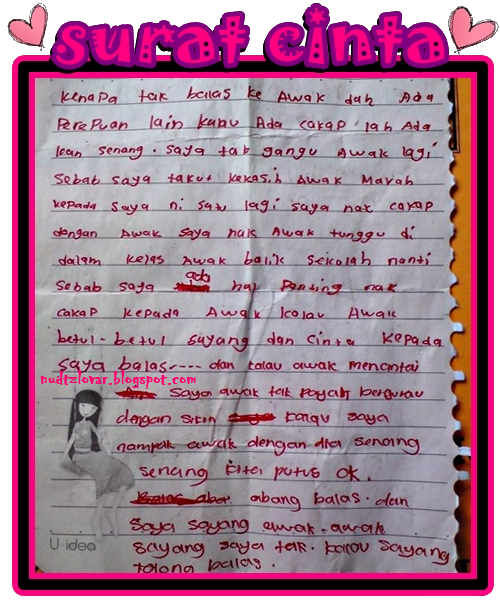 surat cinta
kenapa tak balas ke Awak dah Ada
Perepuan lain kalau Ada cakap lah Ada
kan senang. saya tak gangu Awak lagi
Sebab saya takut kekasih Awak Marah
kepada saya ni satu lagi saya nak cakap
dengan Awak saya nak Awak tunggu di
dalam kelas Awak balik sekolah nanti
Sebab saya ada hal Penting nak
cakap kepada Awak kalau Awak
betul-betul sayang dan Cinta kepada
saya balas---- dan kalau awak mencintai
nudtzlovar.blogspot.com
saya awak tak payah bergurau
dengan kalau saya
nampak awak dengan dia senang
senang kita putus OK.
abang balas. dan
Saya sayang awak. awak
sayang saya tak. kalau sayang
tolong balas.
U-idea